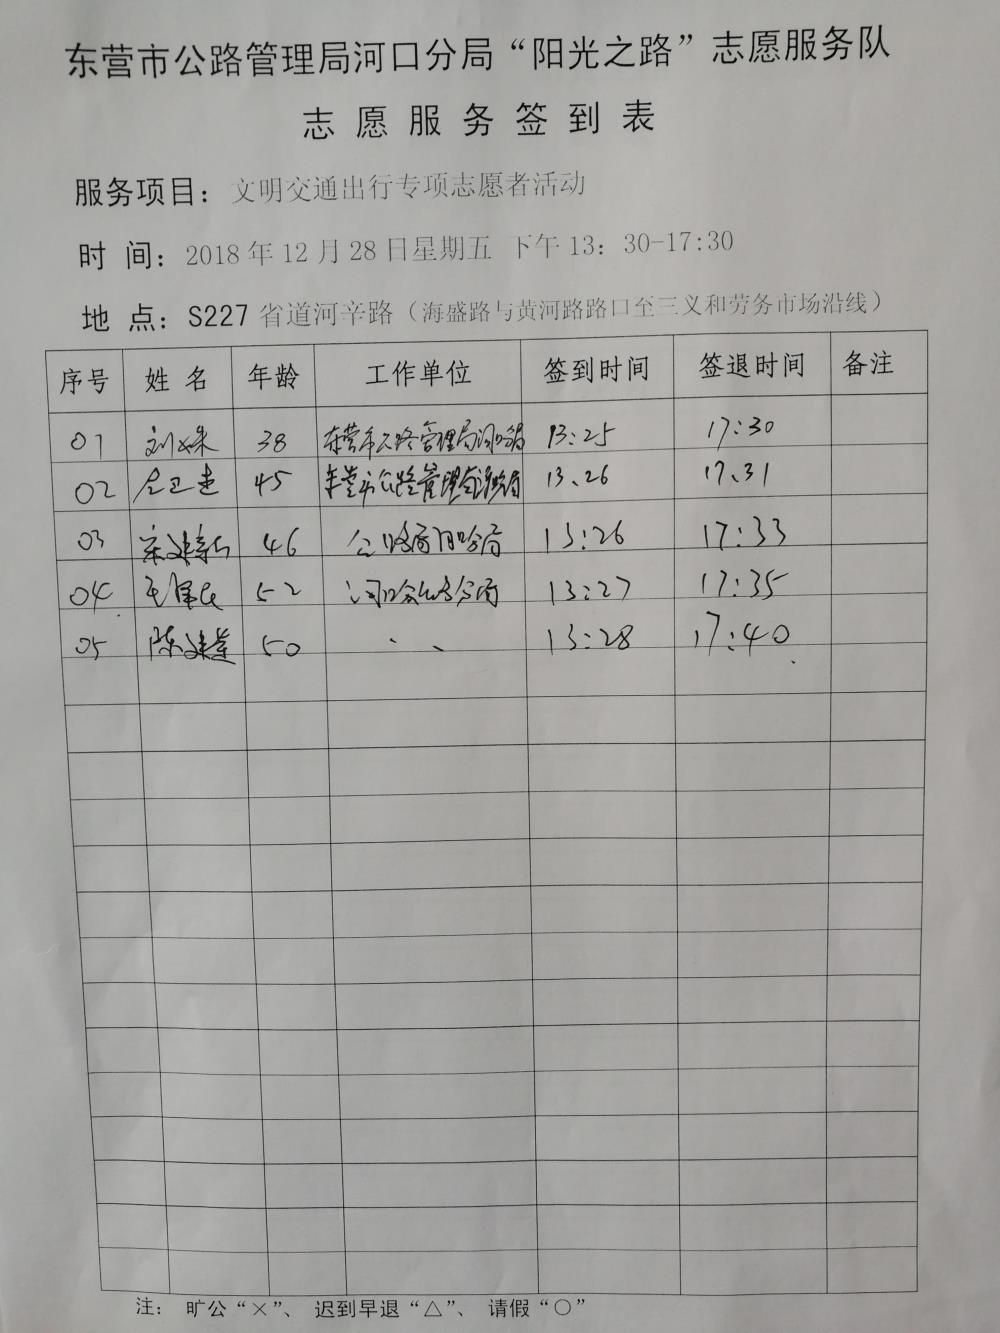 东营市公路管理局河口分局“阳光之路”志愿服务队
志愿服务签到表
服务项目：文明交通出行专项志愿者活动
时 间：2018年12月28日星期五 下午13：30-17:30
地 点：S227省道河辛路（海盛路与黄河路路口至三义和劳务市场沿线）
序号 姓名 年龄 工作单位 签到时间 签退时间 备注
01 刘 38 东营市公路管理局河口分局 13:25 17:30
02 45 东营市公路管理局 13.26 17.31
03 46 公路局河口分局 13:26 17:33
04 52 河口公路分局 13:27 17:35
05 陈建 50 、、 13:28 17:40
注： 旷公“×”、 迟到早退“△”、 请假“○”